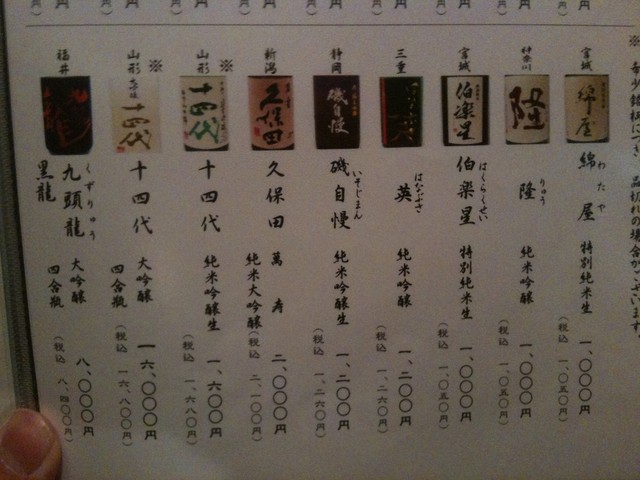 ※希少銘柄につき、品切れの場合がございます。
宮城
綿屋
綿屋
わたや
特別純米生
一、〇〇〇円
(税込 一、〇五〇円)
神奈川
隆
隆
りゅう
純米吟醸
一、〇〇〇円
(税込 一、〇五〇円)
宮城
伯楽星
伯楽星
はくらくせい
特別純米生
一、〇〇〇円
(税込 一、〇五〇円)
三重
はなぶさ
英
はなぶさ
純米吟醸
一、二〇〇円
(税込 一、二六〇円)
静岡
磯自慢
磯自慢
いそじまん
純米吟醸生
一、二〇〇円
(税込 一、二六〇円)
新潟
久保田
久保田
萬寿
純米大吟醸
二、〇〇〇円
(税込 二、一〇〇円)
※
山形
十四代
十四代
純米吟醸生
一、六〇〇円
(税込 一、六八〇円)
※
山形
十四代
十四代
大吟醸
四合瓶
一六、〇〇〇円
(税込 一六、八〇〇円)
福井
龍
九頭龍
くずりゅう
黒龍
大吟醸
四合瓶
八、〇〇〇円
(税込 八、四〇〇円)